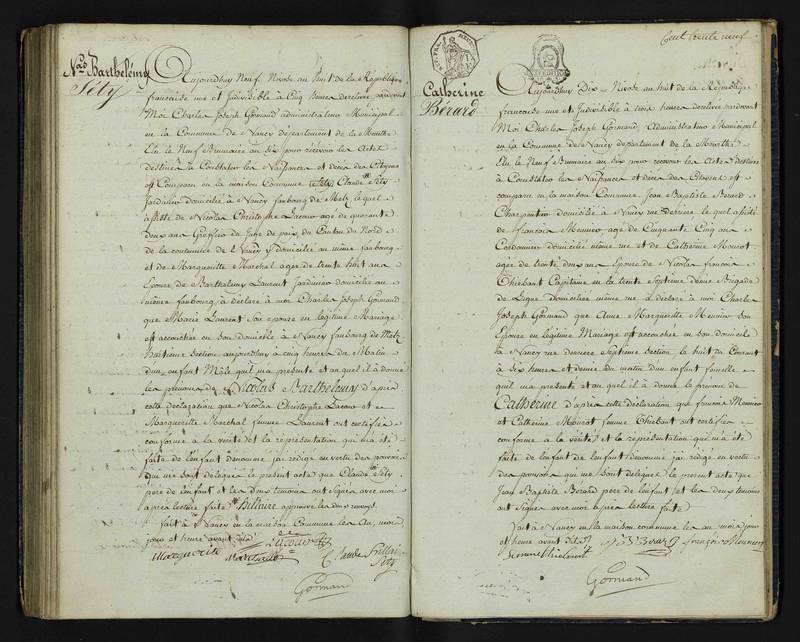 Nas Barthelémy
Séty
Aujourdhuy Neuf Nivose an huit de la République
francaise une et Indivisible à Cinq heures de relevée pardevant
Moi Charles Joseph Gormand administrateur Municipal
en la Commune de Nancy département de la Meurthe
Elu le Neuf Brumaire an Six pour recevoir les Actes
destinés à Constater les Naissances et décès des Citoyens
est Comparu en la maison Commune Claude Séty
Jardinier domicilié à Nancy faubourg de Metz lequel
assisté de Nicolas Christophe Lacour age de quarante
deux ans Greffier du Juge de paix du Canton du Nord
de la commune de Nancy y domicilié au même faubourg
et de Margueritte Marechal agée de trente huit ans
Epouse de Barthelemy Laurent Jardinier domicilié au
même faubourg a déclaré à moi Charles Joseph Gormand
que Marie Laurent Son epouse en légitime Mariage
est accouchée en Son domicile à Nancy faubourg de Metz
huitième Section aujourdhuy à cinq heures du Matin
dun enfant Mâle quil ma présenté et auquel il à donné
les prénoms de Nicolas Barthelemy d'après
cette déclaration que Nicolas Christophe Lacour et
Marguerite Marechal femme Laurent ont certifiée
conforme à la vérité et la représentation qui m'a été
faite de lenfant dénommé jai rédigé en vertu des pouvoirs
qui me sont délégués le présent acte que Claude Séty
pere de lenfant et les deux temoins ont Signé avec moi
après lecture faite Hillaire approuvé les deux renvoys
fait à Nancy en la maison Commune les An, mois
jour et heure avant dits
Marguerite Marechalle Lacour Claude Hillaire
Séty
Gormand
Cent trente neuf
Catherine
Bérard
Aujourdhuy Dix Nivose an huit de la République
francaise une et Indivisible à trois heures de relevée pardevant
Moi Charles Joseph Gormand, Administrateur Municipal
en la Commune de Nancy département de la Meurthe
Elu le Neuf Brumaire an Six pour recevoir les Actes destinés
à Constater les Naissances et décès des Citoyens est
comparu en la maison Commune Jean Baptiste Bérard
Charpentier domicilié à Nancy rue derriere lequel assisté
de francois Meunier age de Cinquante Cinq ans
Cordonnier domicilié même rue et de Catherine Mourot
agée de trente deux ans Epouse de Nicolas francois
Thiébaut Capitaine en la trente Septième demie Brigade
de Ligne domiciliée même rue a déclaré à moi Charles
Joseph Gormand que Anne Marguerite Meunier Son
Epouse en légitime Mariage est accouchée en Son domicile
à Nancy rue derriere Septieme Section le huit du Courant
à Six heures et demie du matin d'un enfant femelle
quil ma présenté et au quel il à donné le prénom de
Catherine d'après cette déclaration que francois Meunier
et Catherine Mourot femme Thiébaut ont certifiée
conforme à la vérité et la représentation qui m'a été
faite de lenfant de lenfant dénommé jai redigé en vertu
des pouvoirs qui me Sont délégués le présent acte que
Jean Baptiste Bérard pere de lenfant et les deux temoins
ont Signé avec moi après lecture faite
fait à Nancy en la maison commune les an mois jour
et heure avant dits
Berard françois Meunier
femme thiebaut
Gormand